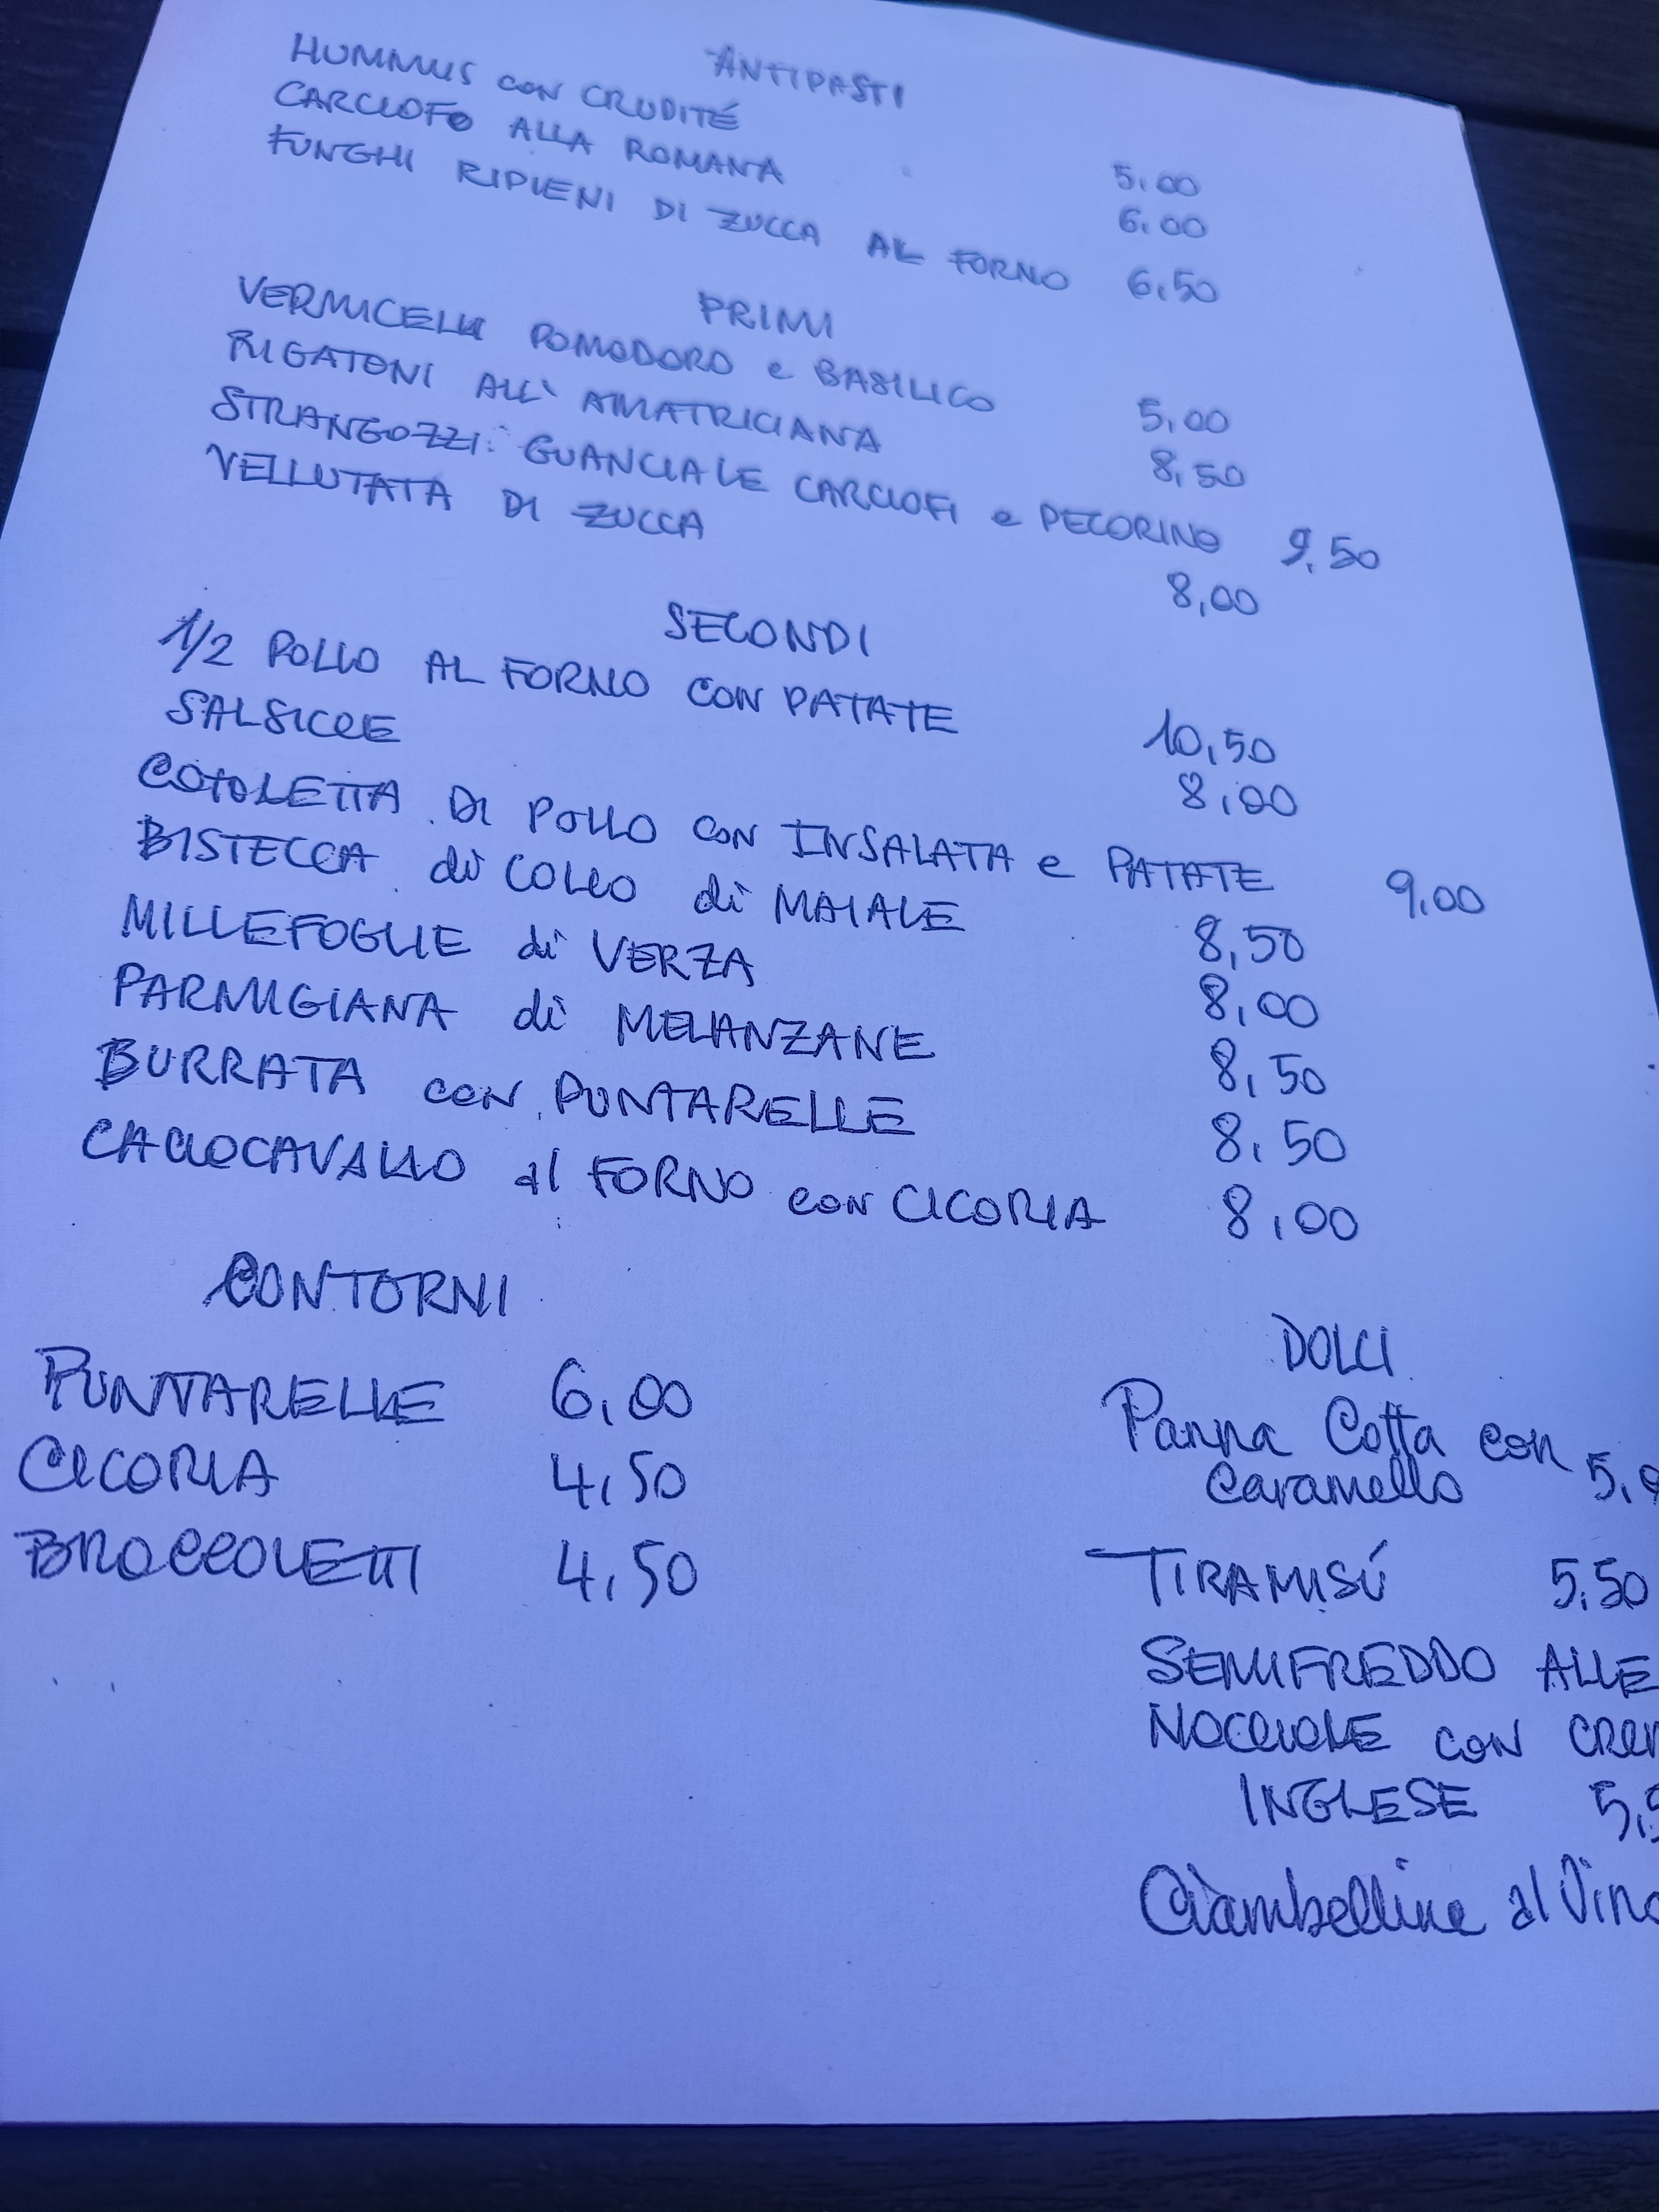 ANTIPASTI
HUMMUS con CRUDITÉ 5,00
CARCIOFO ALLA ROMANA 6,00
FUNGHI RIPIENI DI ZUCCA AL FORNO 6,50
PRIMI
VERMICELLI POMODORO e BASILICO 5,00
RIGATONI ALL' AMATRICIANA 8,50
STRANGOZZI: GUANCIALE CARCIOFI e PECORINO 9,50
VELLUTATA DI ZUCCA 8,00
SECONDI
1/2 POLLO AL FORNO CON PATATE 10,50
SALSICCE 8,00
COTOLETTA DI POLLO CON INSALATA e PATATE 9,00
BISTECCA di COLLO di MAIALE 8,50
MILLEFOGLIE di VERZA 8,00
PARMIGIANA di MELANZANE 8,50
BURRATA con PUNTARELLE 8,50
CACIOCAVALLO al FORNO con CICORIA 8,00
CONTORNI
PUNTARELLE 6,00
CICORIA 4,50
BROCCOLETTI 4,50
DOLCI
Panna Cotta con
Caramello
TIRAMISÚ 5,50
SEMIFREDDO ALLE
NOCCIOLE CON
INGLESE
Ciambelline al